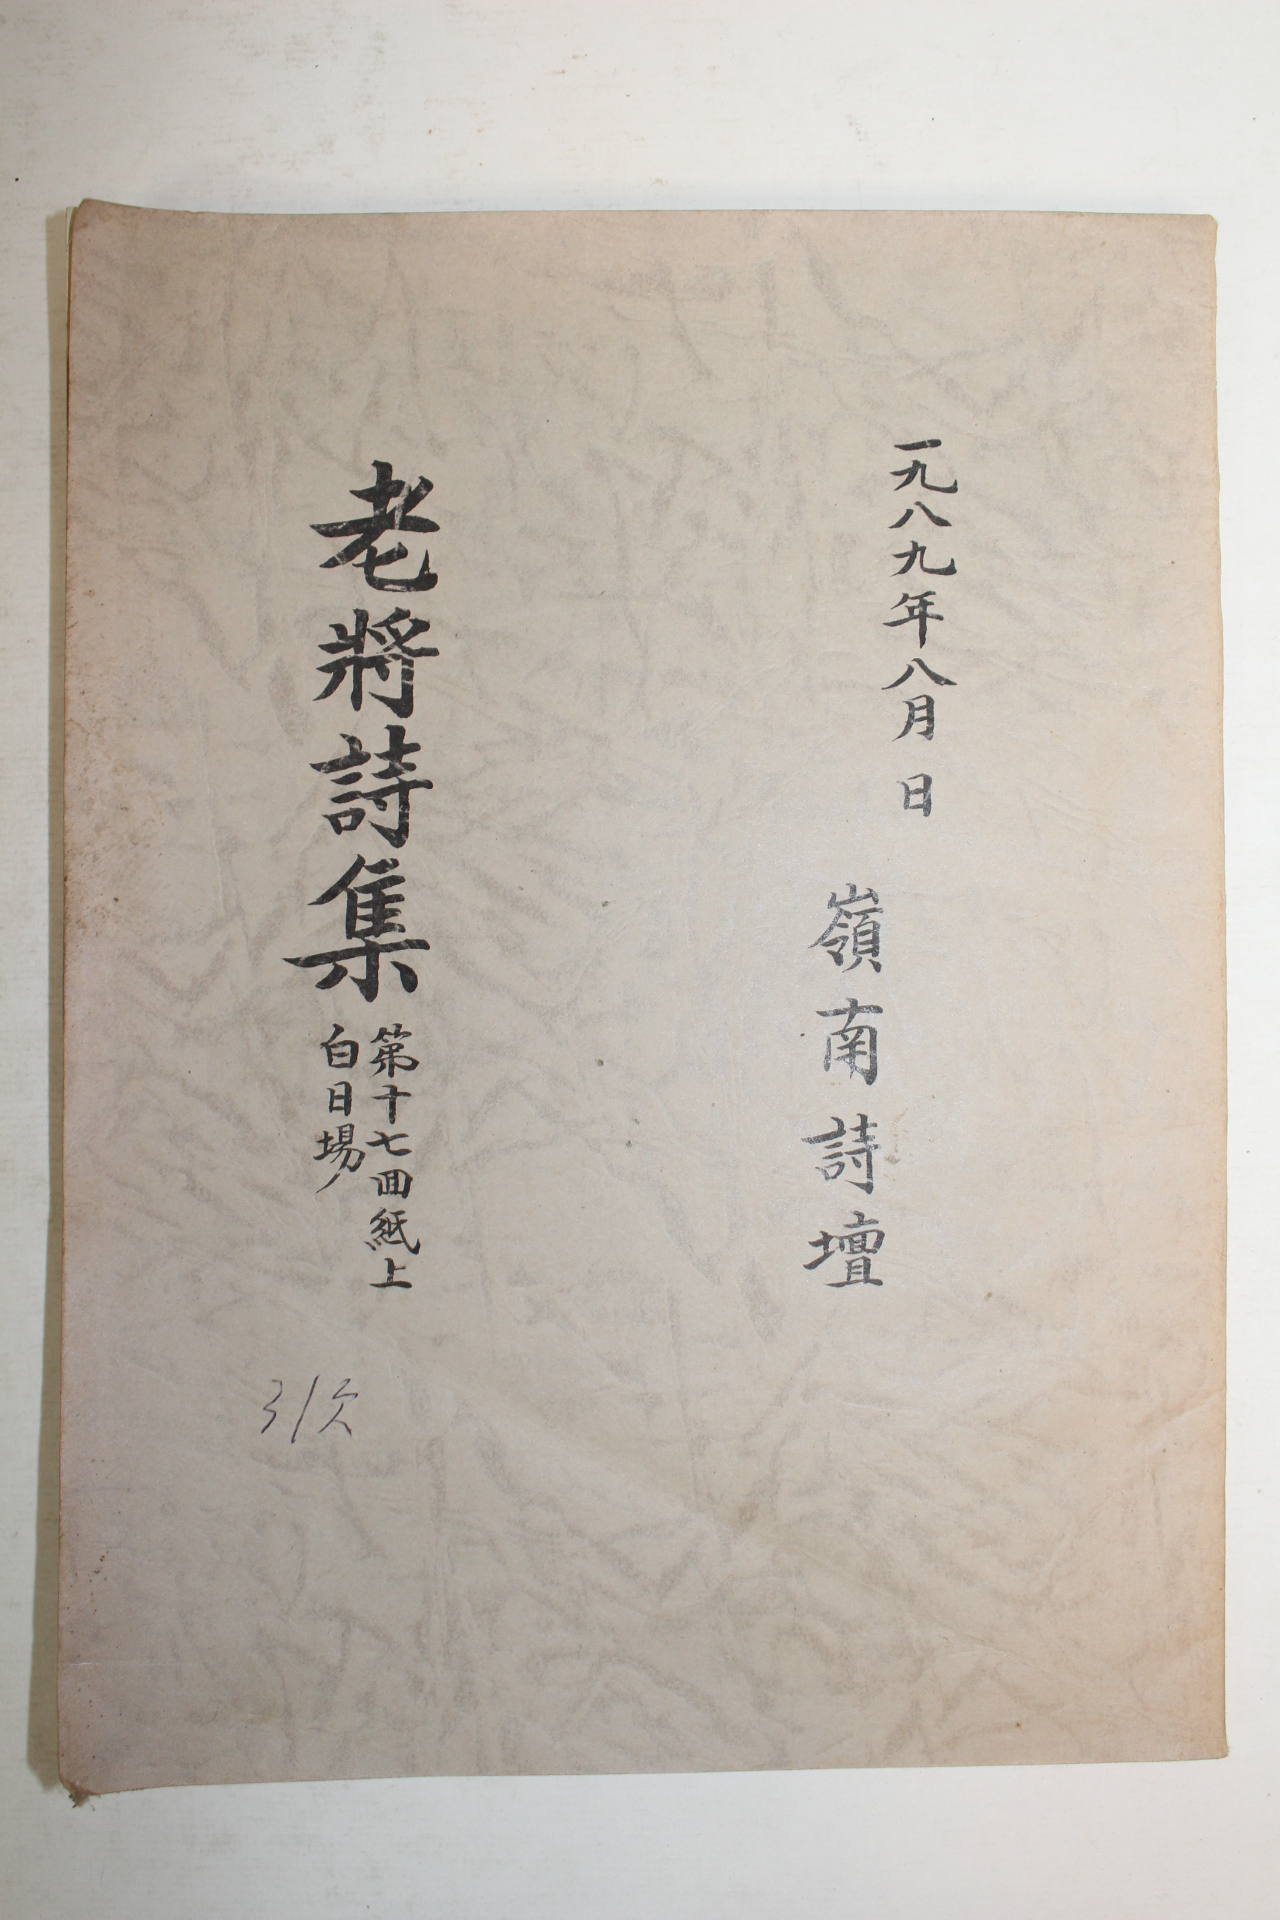 一九八九年八月 日
嶺南詩壇
老將詩集
第十七回紙上
白日場
31次